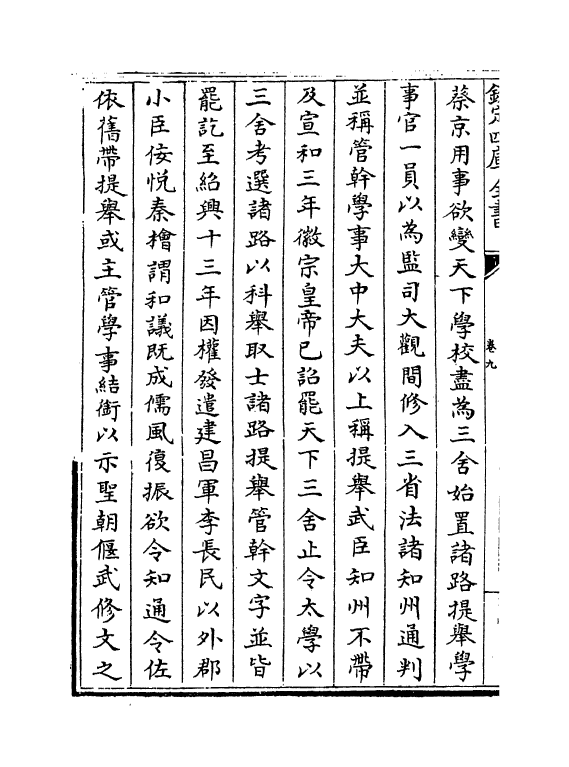 欽定四庫全書
卷九
蔡京用事欲變天下學校盡為三舍始置諸路提舉學
事官一員以為監司大觀間修入三省法諸知州通判
並稱管幹學事大中大夫以上稱提舉武臣知州不帶
及宣和三年徽宗皇帝已詔罷天下三舍止令太學以
三舍考選諸路以科舉取士諸路提舉管幹文字並皆
罷訖至紹興十三年因權發遣建昌軍李長民以外郡
小臣佞悅秦檜謂和議既成儒風復振欲令知通令佐
依舊帶提舉或主管學事結銜以示聖朝偃武修文之